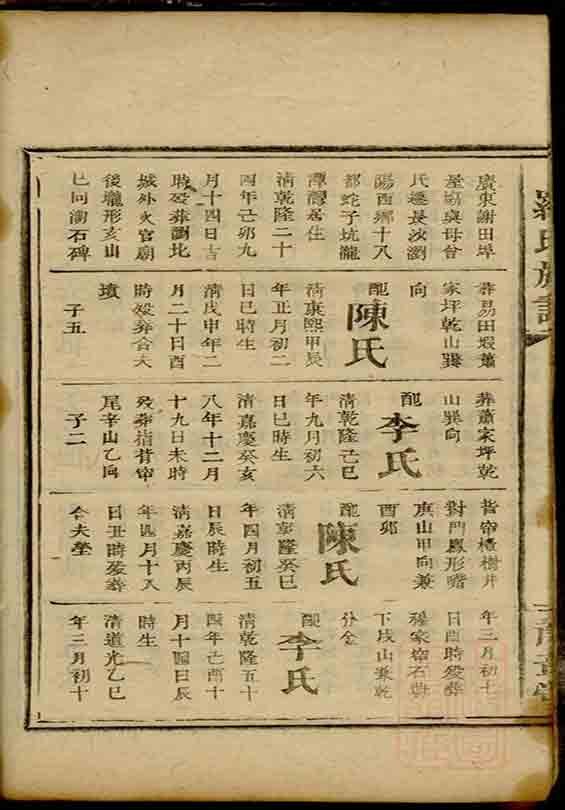 廣東謝田埠
屋窩與母曾
氏遷長沙瀏
陽西鄉十八
都蛇子坑龍
潭灣居住
清乾隆二十
四年己卯九
月十四日吉
時歿葬瀏北
城外火官廟
後龍形亥山
巳向湖石碑
葬易田塅蕭
家坪乾山巽
向
配陳氏
清康熙甲辰
年正月初二
日巳時生
清戊申年二
月二十日酉
時歿葬合夫
墳
子五
葬蕭家坪乾
山巽向
配李氏
清乾隆己巳
年九月初六
日巳時生
清嘉慶癸亥
八年十二月
十九日未時
歿葬指背窑
尾辛山乙向
子二
背窑樟樹井
對門鳳形嘴
庚山甲向兼
酉卯
配陳氏
清乾隆癸巳
年四月初五
日辰時生
清嘉慶丙辰
年四月十八
日丑時歿葬
合夫塋
年三月初七
日酉時歿葬
楊家窑石
下戌山兼乾
分金
配李氏
清乾隆五十
四年己酉十
月十四日辰
時生
清道光乙巳
年三月初十
羅氏族譜